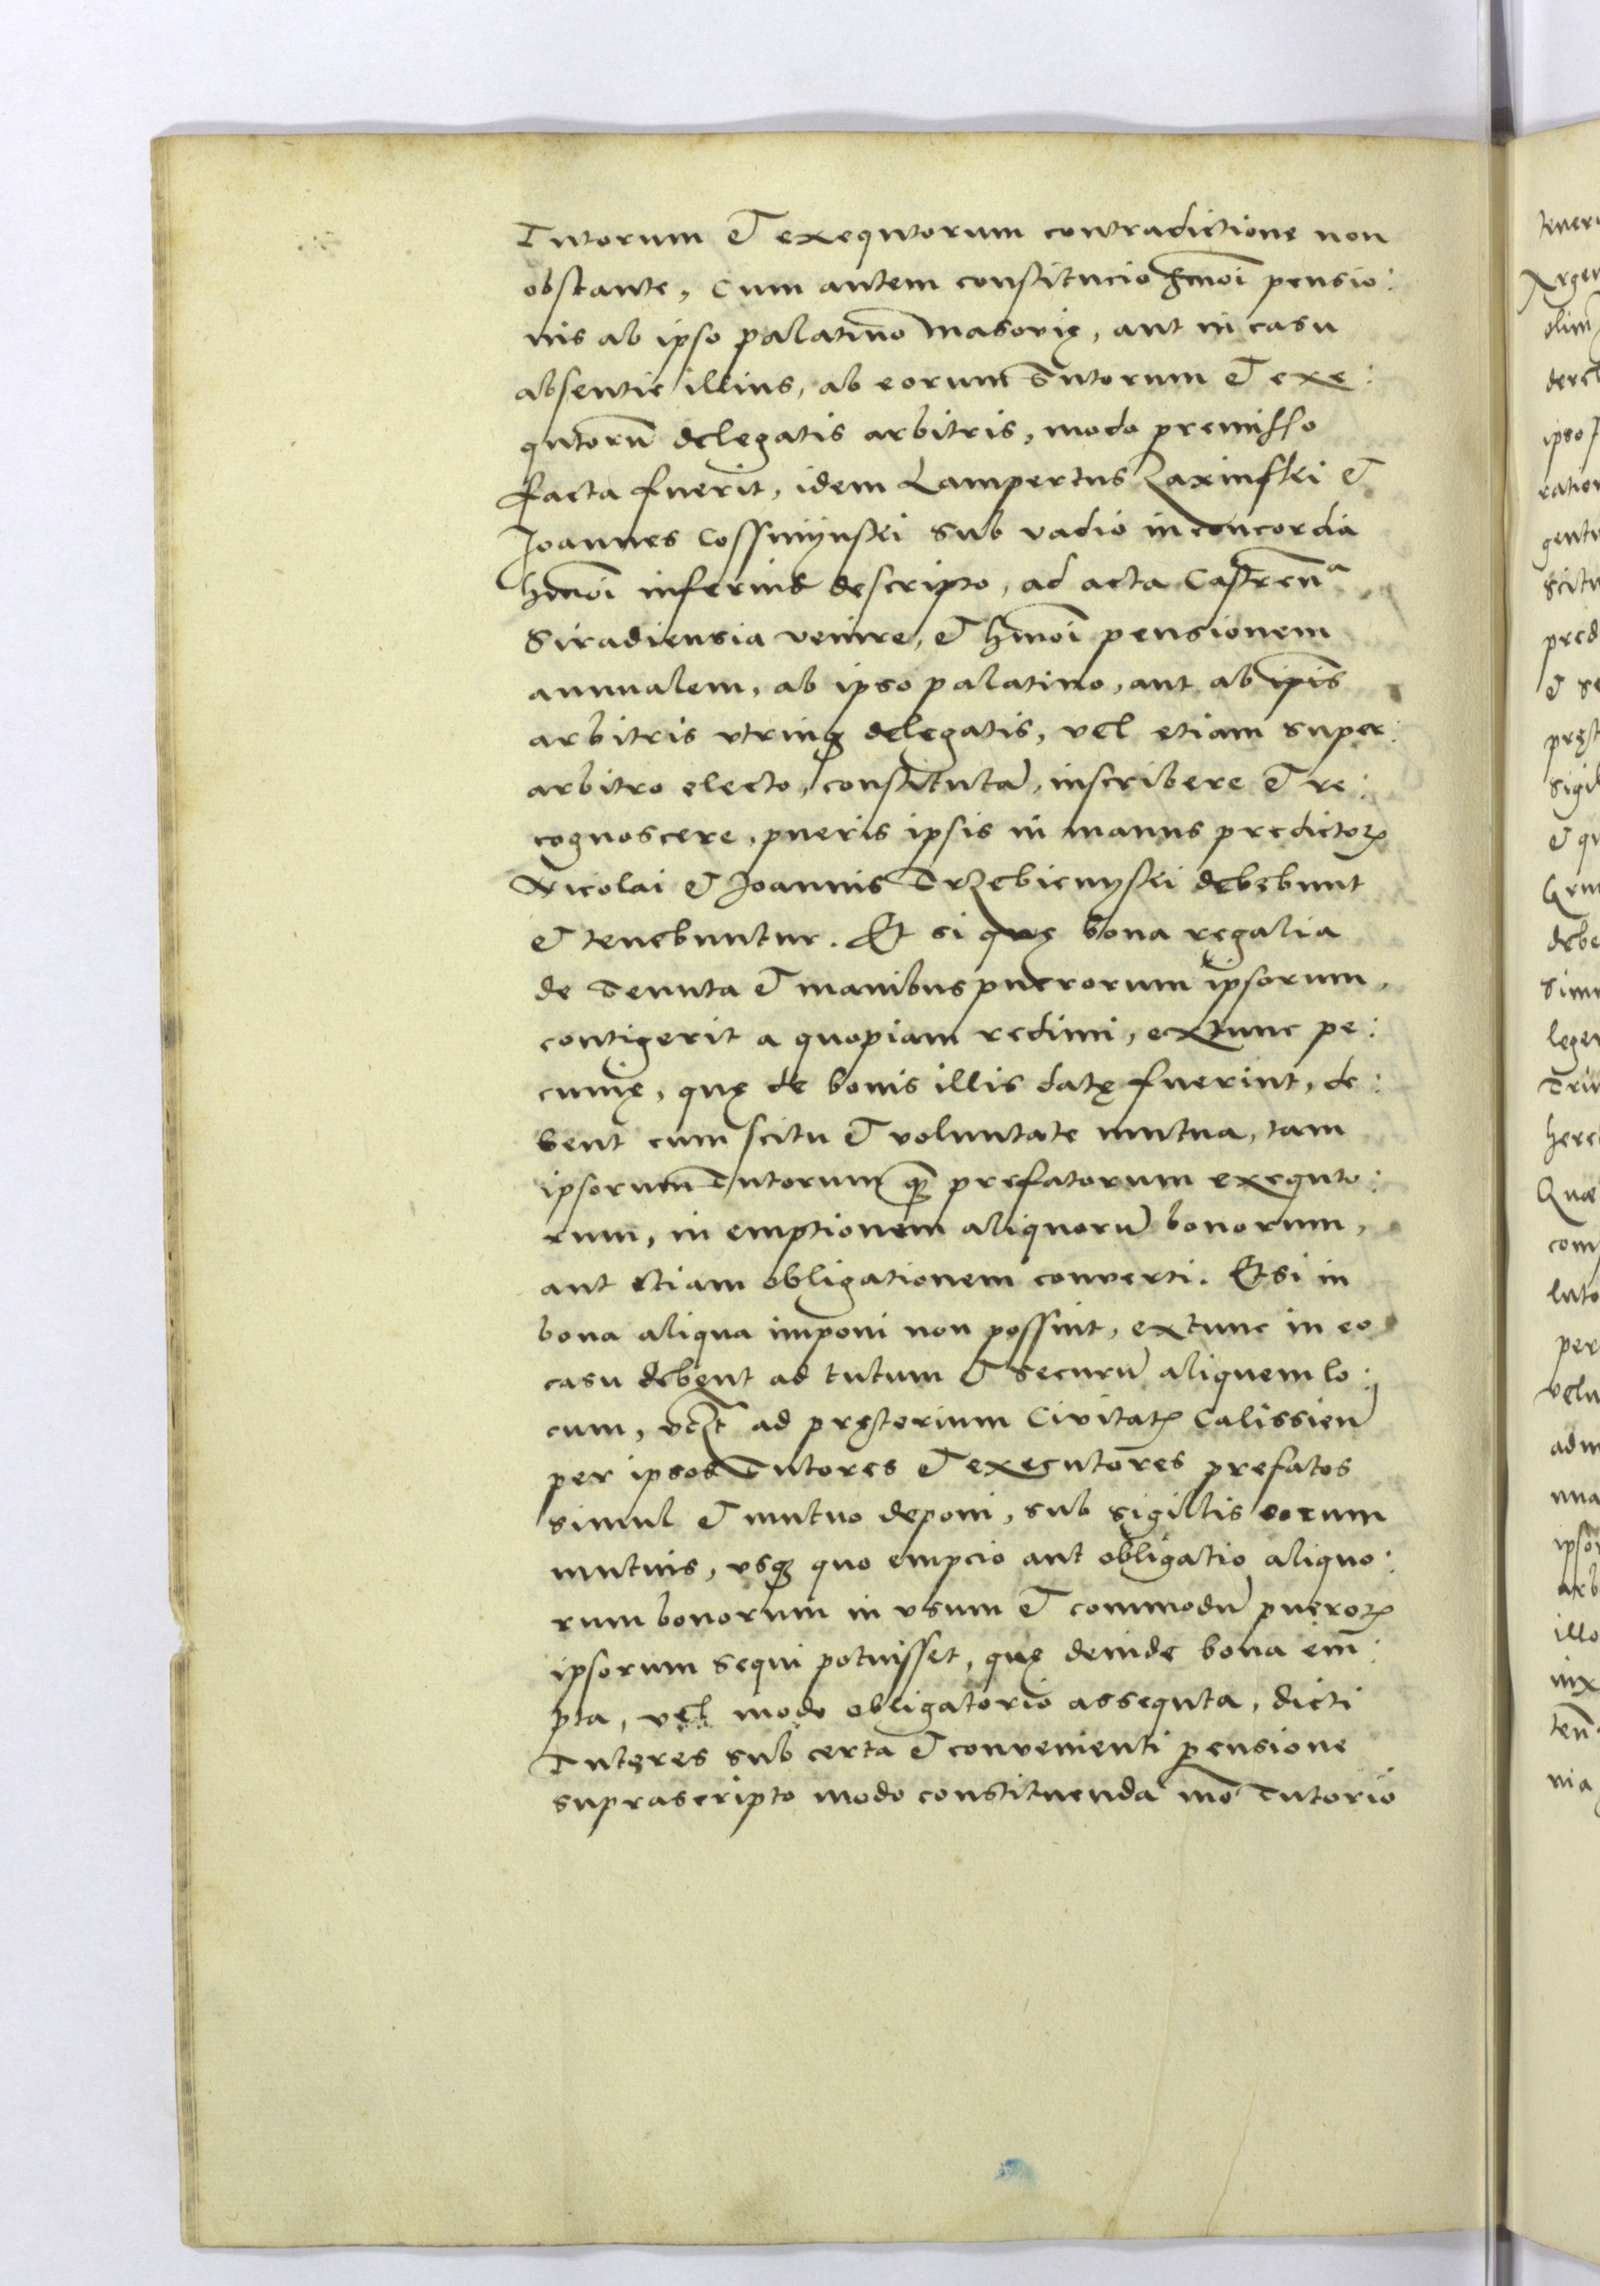 Tutorum & exequtorum contradictione non
obstante, Cum autem constitucio hmōi pensio:
nis ab ipso palatino Masovię, aut in casu
absentie illius, ab eorum Tutorum & exe:
qutorū delegatis arbitris, modo premisso
facta fuerit, idem Lampertus Zaxinski &
Joannes Cossmÿnski sub vadio in concordia
hmōi inferius descripto, ad acta Castren̄a
Siradiensia venire, & hmōi pensionem
annualem, ab ipso palatino, aut ab ip̄is
arbitris utrinq delegatis, vel etiam super:
arbitro electo, constitutā, inscribere & re:
cognoscere, pueris ipsis in manus predictoꝝ
Nicolai & Joannis Trzebienyski debebunt
& tenebuntur. Et si quę bona regalia
de Tenuta & manibus puerorum ipsorum,
contigerit a quopiam redimi, extunc pe:
cunię, quę de bonis illis datę fuerint, de:
bent cum scitu & voluntate mutua, tam
ipsorum Tutorum q̄ prefatorum exequto:
rum, in emptionem aliquorū bonorum,
aut etiam obligationem converti. Et si in
bona aliqua imponi non possint, extunc in eo
casu debent ad tutum & securū aliquem lo:
cum, vczt ad pręterium Civitatꝭ Calissien̄
per ipsos Tutores & executores prefatos
simul & mutuo deponi, sub sigillis eorum
mutuis, usq quo empcio aut obligatio aliquo:
rum bonorum in usum & commodū pueroꝝ
ipsorum sequi potuisset, quę deinde bona em̄:
pta, vel modo obligatorio assequta, dicti
Tutores sub certa & convenienti pensione
suprascripto modo constituenda mō Tutorio